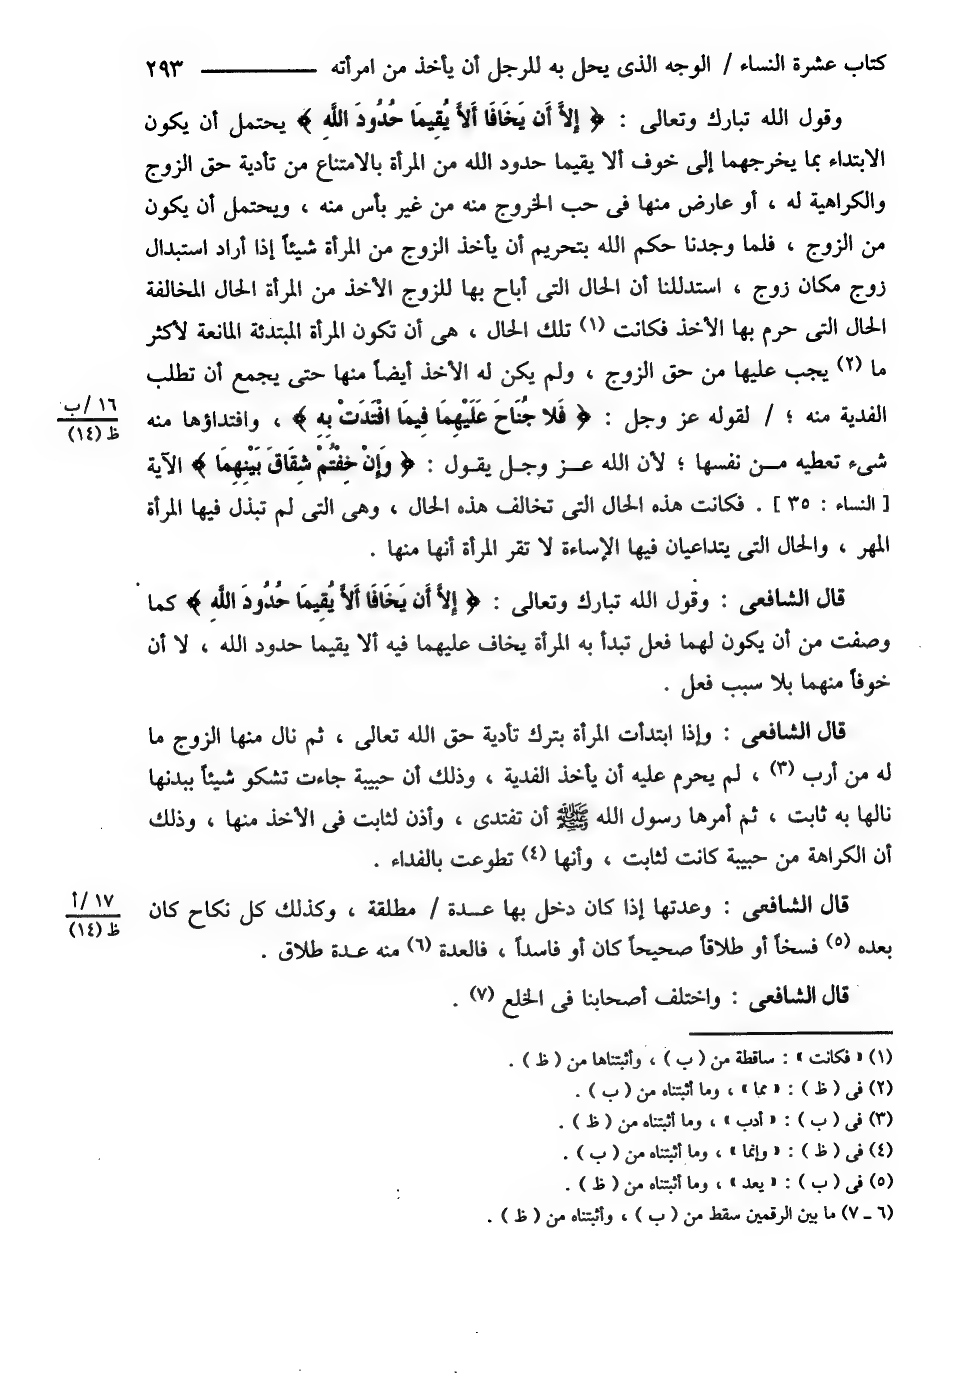 كتاب عشرة النساء / الوجه الذى يحل به للرجل أن يأخذ من امرأته ـــــــــــ ٢٩٣
وقول الله تبارك وتعالى : ﴿ إِلاَّ أَن يَخَافَا أَلاَّ يُقِيمَا حُدُودَ اللَّهِ ﴾ يحتمل أن يكون
الابتداء بما يخرجهما إلى خوف ألا يقيما حدود الله من المرأة بالامتناع من تأدية حق الزوج
والكراهية له ، أو عارض منها فى حب الخروج منه من غير بأس منه ، ويحتمل أن يكون
من الزوج ، فلما وجدنا حكم الله بتحريم أن يأخذ الزوج من المرأة شيئاً إذا أراد استبدال
زوج مكان زوج ، استدللنا أن الحال التى أباح بها للزوج الأخذ من المرأة الحال المخالفة
الحال التى حرم بها الأخذ فكانت (١) تلك الحال ، هى أن تكون المرأة المبتدئة المانعة لأكثر
ما (٢) يجب عليها من حق الزوج ، ولم يكن له الأخذ أيضاً منها حتى يجمع أن تطلب
الفدية منه ؛ / لقوله عز وجل : ﴿ فَلا جُنَاحَ عَلَيْهِمَا فِيمَا افْتَدَتْ بِهِ ﴾ ، وافتداؤها منه
١٦/ب
ظ (١٤)
شىء تعطيه مـن نفسها ؛ لأن الله عـز وجـل يقـول : ﴿ وَإِنْ خِفْتُمْ شِقَاقَ بَيْنِهِمَا ﴾ الآية
[ النساء : ٣٥ ] . فكانت هذه الحال التى تخالف هذه الحال ، وهى التى لم تبذل فيها المرأة
المهر ، والحال التى يتداعيان فيها الإساءة لا تقر المرأة أنها منها .
قال الشافعى : وقول الله تبارك وتعالى : ﴿ إِلاَّ أَن يَخَافَا أَلاَّ يُقِيمَا حُدُودَ اللَّهِ ﴾ كما
وصفت من أن يكون لهما فعل تبدأ به المرأة يخاف عليهما فيه ألا يقيما حدود الله ، لا أن
خوفاً منهما بلا سبب فعل .
قال الشافعى : وإذا ابتدأت المرأة بترك تأدية حق الله تعالى ، ثم نال منها الزوج ما
له من أرب (٣) ، لم يحرم عليه أن يأخذ الفدية ، وذلك أن حبيبة جاءت تشكو شيئاً ببدنها
نالها به ثابت ، ثم أمرها رسول الله ﷺ أن تفتدى ، وأذن لثابت فى الأخذ منها ، وذلك
أن الكراهة من حبيبة كانت لثابت ، وأنها (٤) تطوعت بالفداء .
قال الشافعى : وعدتها إذا كان دخل بها عـدة / مطلقة ، وكذلك كل نكاح كان
١٧/أ
ظ (١٤)
بعده (٥) فسخاً أو طلاقاً صحيحاً كان أو فاسداً ، فالعدة (٦) منه عـدة طلاق .
قال الشافعى : واختلف أصحابنا فى الخلع (٧) .
(١) « فكانت » : ساقطة من ( ب ) ، وأثبتناها من ( ظ ) .
(٢) فى ( ظ ) : « مما » ، وما أثبتناه من ( ب ) .
(٣) فى ( ب ) : « أدب » ، وما أثبتناه من ( ظ ) .
(٤) فى ( ظ ) : « وإنما » ، وما أثبتناه من ( ب ) .
(٥) فى ( ب ) : « يعد » ، وما أثبتناه من ( ظ ) .
(٦ ـ ٧) ما بين الرقمين سقط من ( ب ) ، وأثبتناه من ( ظ ) .